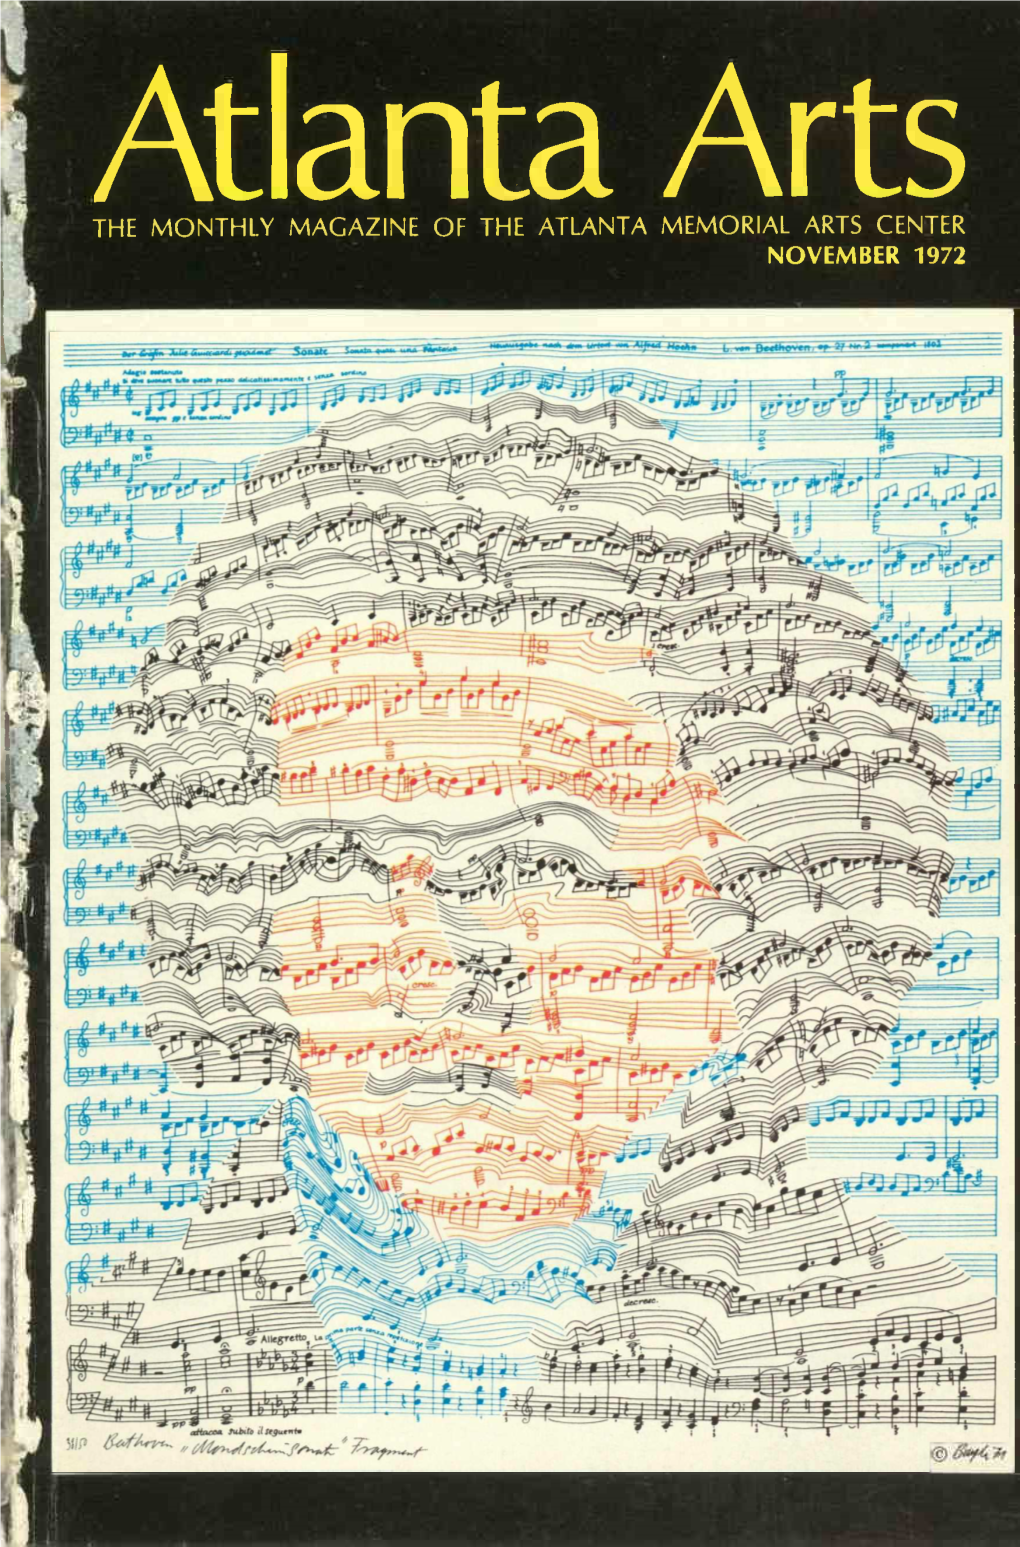 Atlanta Arts
THE MONTHLY MAGAZINE OF THE ATLANTA MEMORIAL ARTS CENTER
NOVEMBER 1972
Der Gräfin Julie Guicciardi gewidmet Sonate Sonata quasi una Fantasia Herausgabe nach dem Urtext von Alfred Hoehn L. van Beethoven, op. 27 Nr. 2 componiert 1802
Adagio sostenuto
Si deve suonare tutto questo pezzo delicatissimamente e senza sordino
pp
sempre pp e senza sordino
cresc.
decresc.
p
cresc.
p
decresc.
Allegretto
p
pp
pp
attacca subito il seguente
Beethoven "Mondscheinsonate" Fragment
©